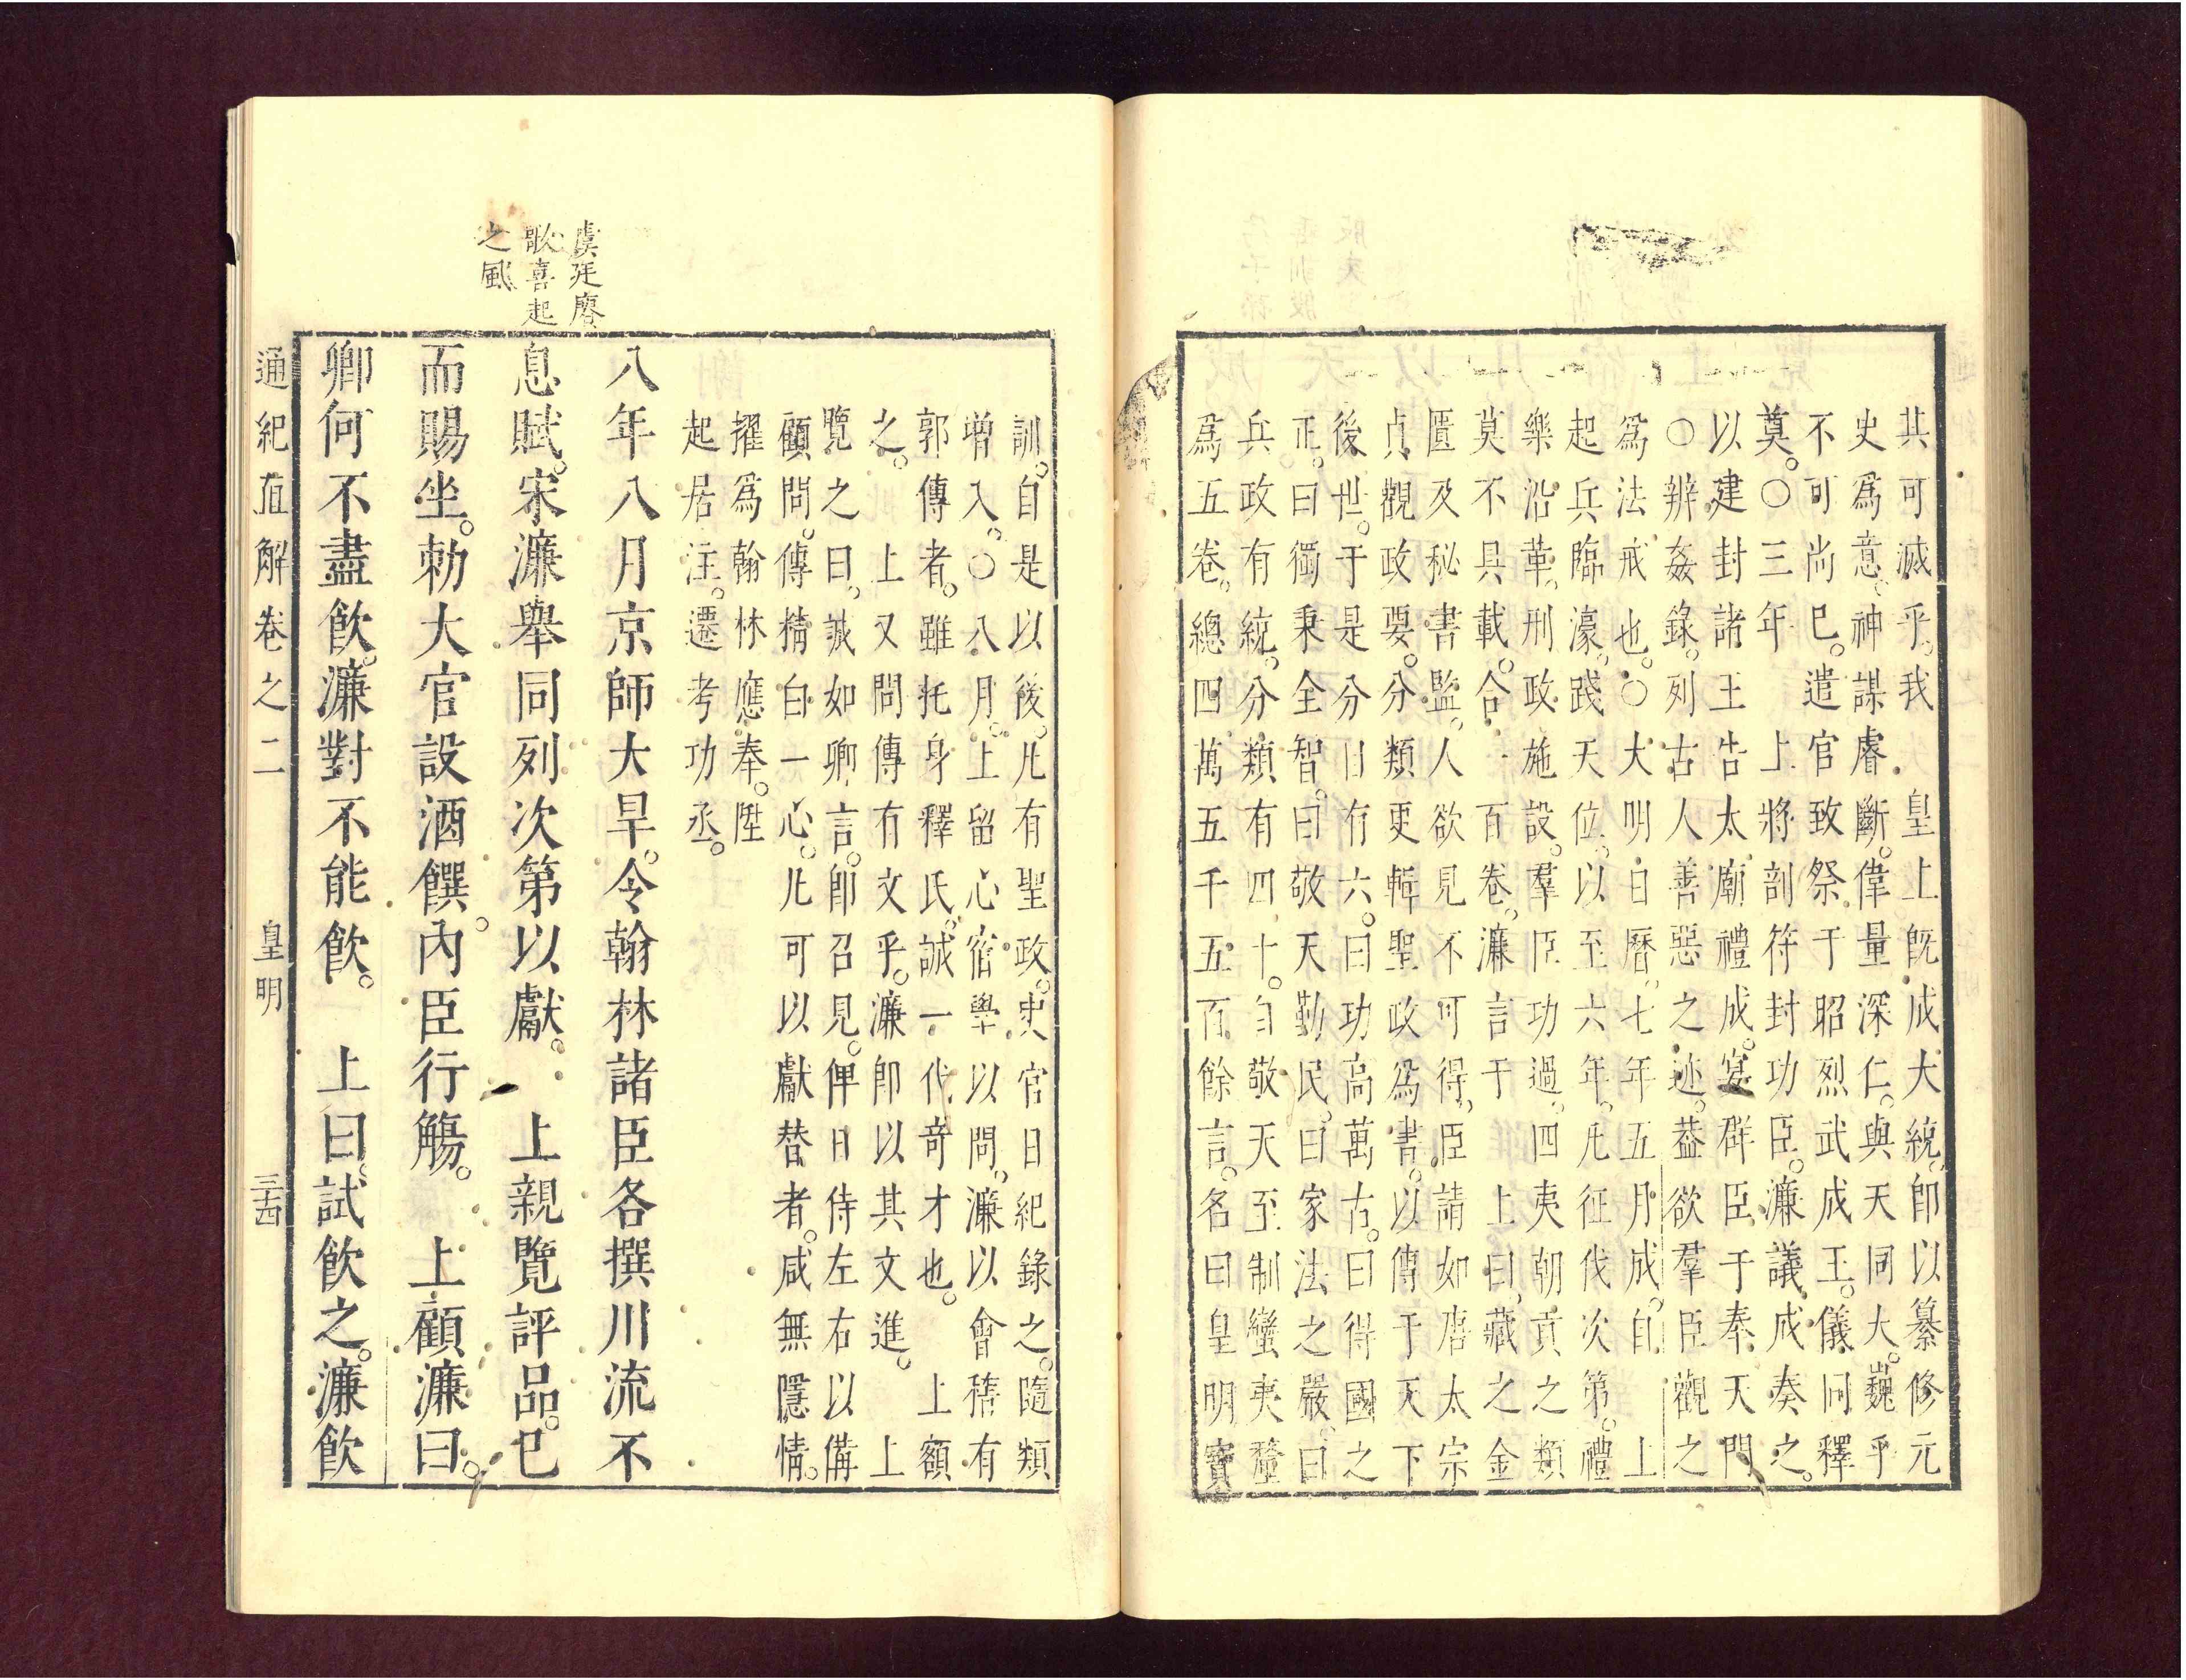 其可滅乎。我　皇上旣成大統。卽以纂修元
史爲意。神謀睿斷。偉量深仁。與天同大。巍乎
不可尚巳。遣官致祭于昭烈武成王。儀同釋
奠。○三年　上將剖符封功臣。濂議。成奏之。
以建封諸王告太廟禮成。宴群臣于奉天門
○辨姦錄。列古人善惡之迹。葢欲羣臣觀之
爲法戒也。○大明日曆。七年五月成。自　上
起兵臨濠。踐天位。以至六年。凡征伐次第。禮
樂沿革。刑政施設。羣臣功過。四夷朝貢之類
莫不具載。合一百卷。濂言于　上曰。藏之金
匱及秘書監。人欲見不可得。臣請如唐太宗
貞觀政要。分類更輯聖政爲書。以傳于天下
後世。于是分目有六。曰功高萬古。曰得國之
正。曰獨秉全智。曰敬天勤民。曰家法之嚴。曰
兵政有統。分類有四十。自敬天至制蠻夷釐
爲五卷。總四萬五千五百餘言。名曰皇明寶
訓。自是以後。凡有聖政。史官日紀錄之。隨類
增入。○八月。上留心宿學以問。濂以會稽有
郭傳者。雖托身釋氏。誠一代奇才也。　上額
之。　上又問傳有文乎。濂卽以其文進。　上
覽之曰。誠如卿言。卽召見。俾日侍左右以備
顧問。傳精白一心。凡可以獻替者。咸無隱情。
擢爲翰林應奉。陞
起居注。遷考功丞。
虞廷賡
歌喜起
之風
八年八月京師大旱。令翰林諸臣各撰川流不
息賦。宋濂舉同列次第以獻。　上親覽評品。已
而賜坐。勑大官設酒饌。內臣行觴。　上顧濂曰。
卿何不盡飲。濂對不能飲。　上曰。試飲之。濂飲
通紀直解卷之二　皇明　三十四